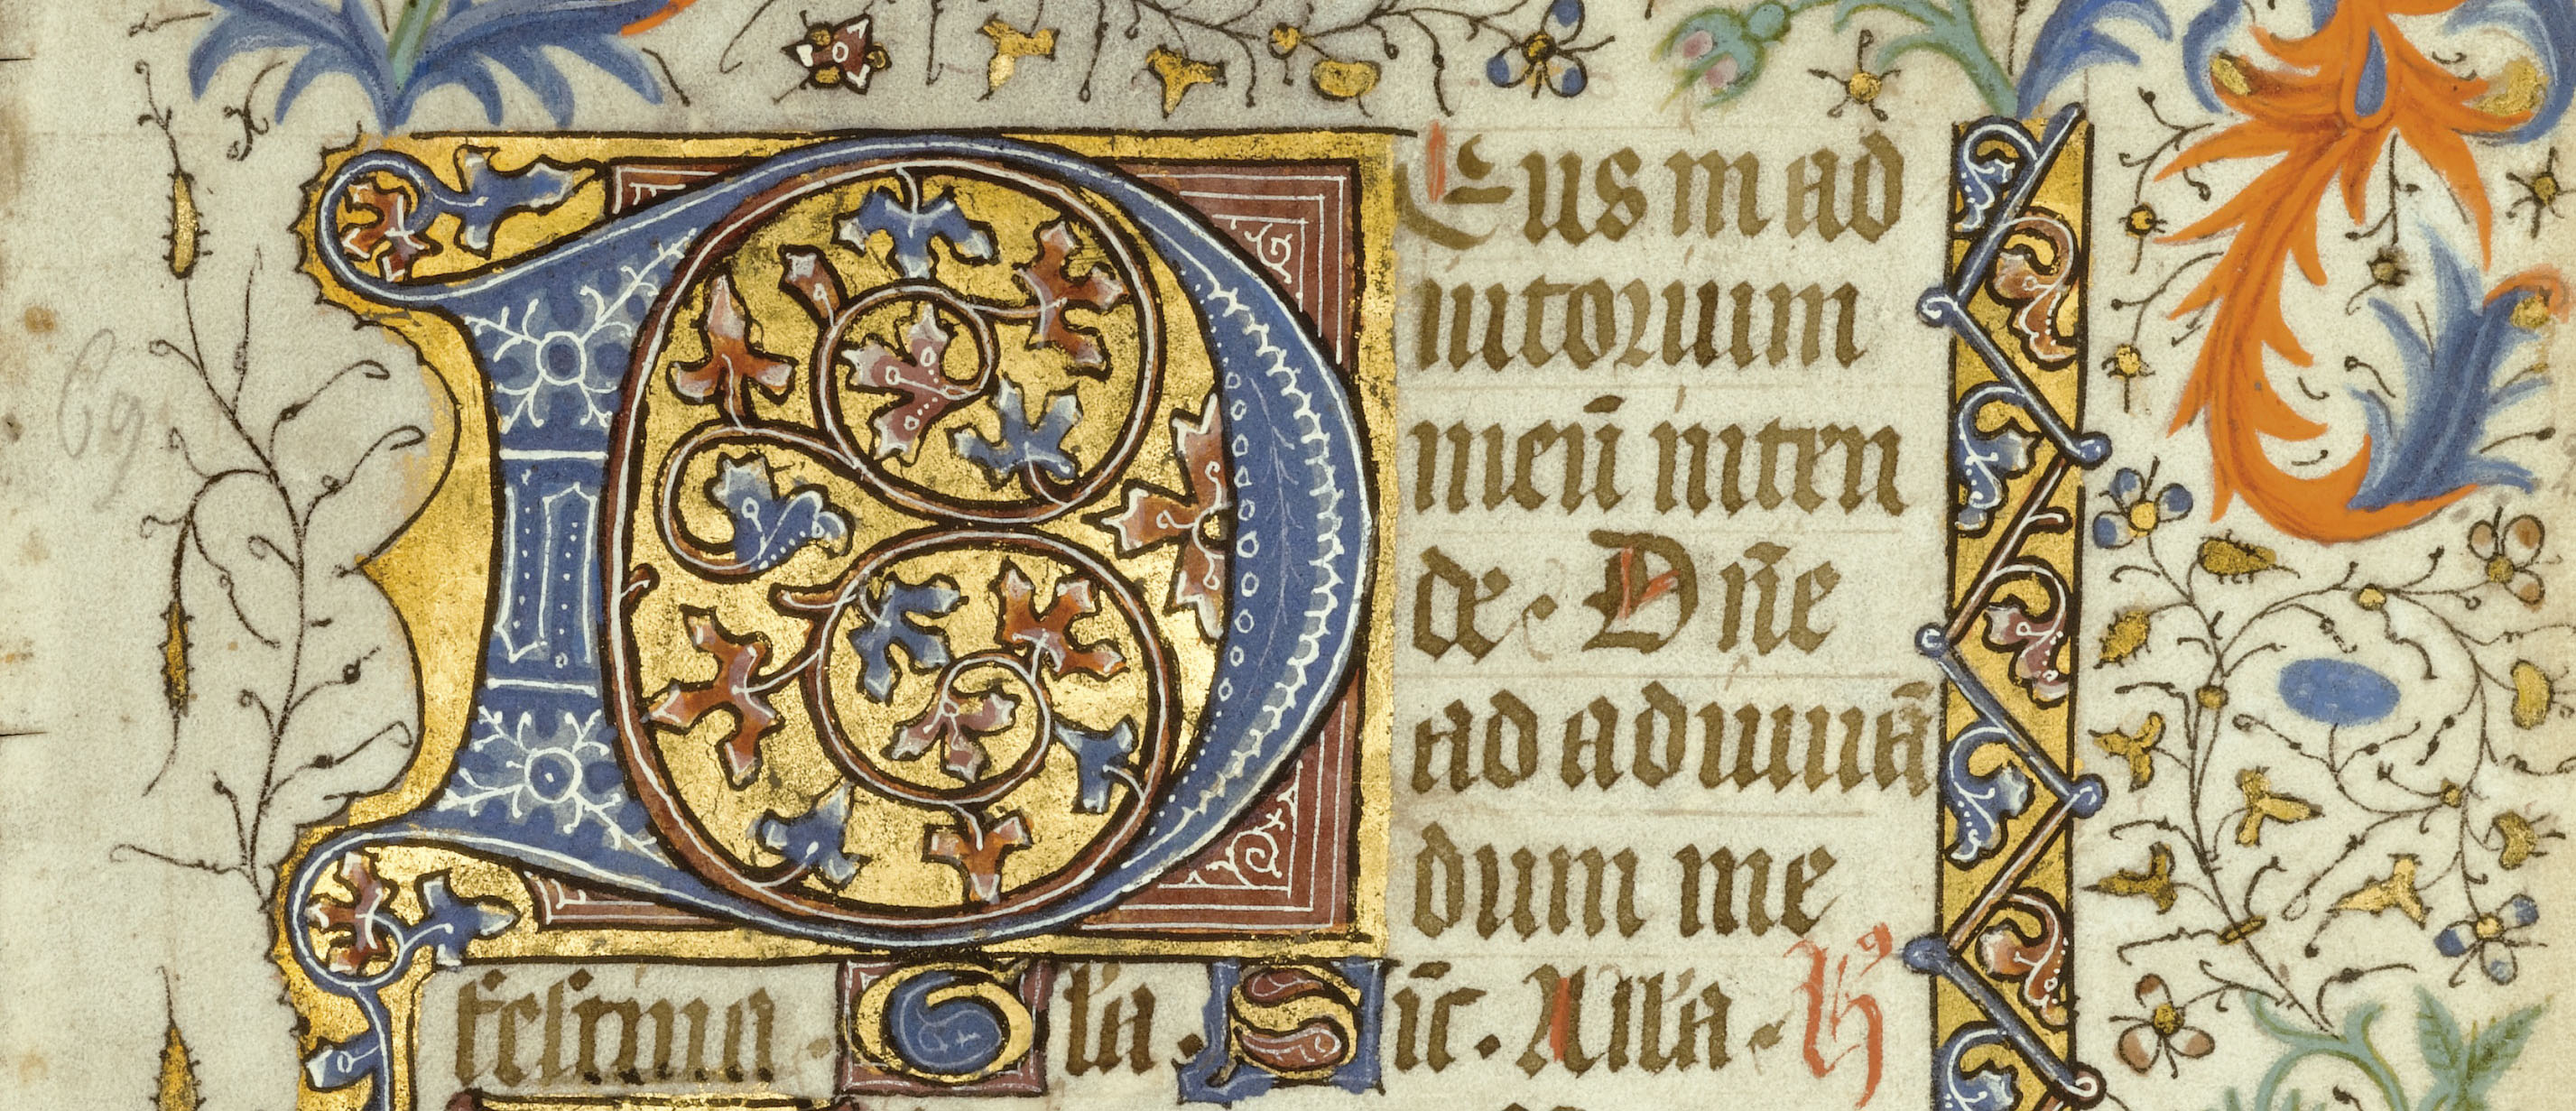 DEus in ad
iutorium
meū inten
de. Dn̄e
ad adiuuā
dum me
festina. Gl'a. Sic̄. All'a. h9
69